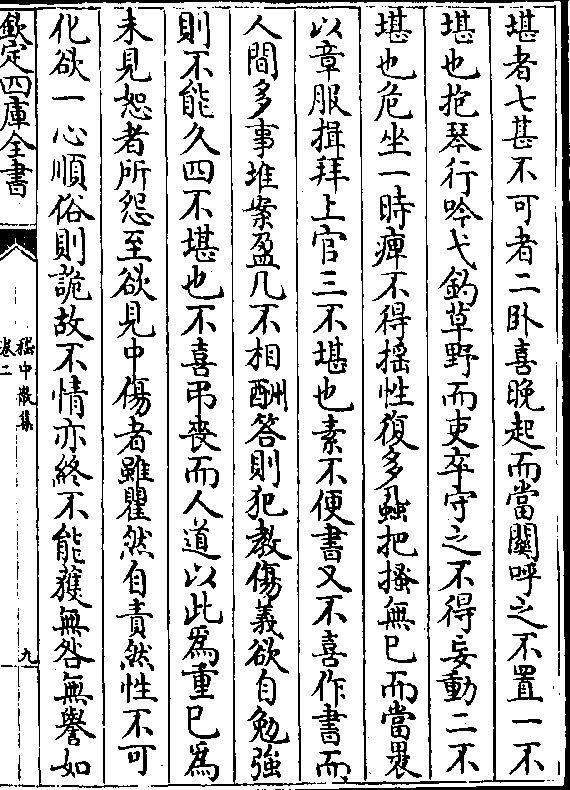 堪者七甚不可者二卧喜晚起而當關呼之不置一不
堪也抱琴行吟弋釣草野而吏卒守之不得妄動二不
堪也危坐一時痺不得揺性復多蝨把搔無已而當褁
以章服揖拜上官三不堪也素不便書又不喜作書而
人間多事堆案盈几不相酬答則犯教傷義欲自勉強
則不能久四不堪也不喜弔喪而人道以此為重已為
未見恕者所怨至欲見中傷者雖瞿然自責然性不可
化欲一心順俗則詭故不情亦終不能獲無咎無譽如
欽定四庫全書
嵇中散集
卷二
九